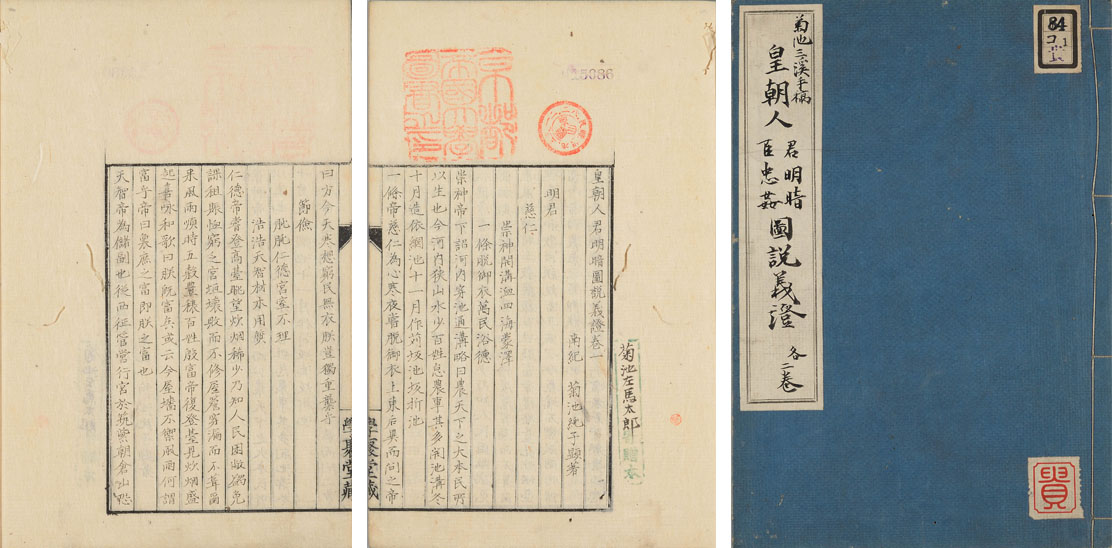 菊池三溪手稿
皇朝人君明暗臣忠姦圖説義證 各二卷
84
貴
京都帝國大學圖書之印
菊池左馬太郎
皇朝人君明暗圖説義證卷一
南紀 菊池純子顯著
明君
慈仁
崇神開溝洫四海蒙澤
一條脱御衣萬民浴德
崇神帝下詔河内穿池通溝略曰農天下之大本民所
以生也今河内狹山水少百姓怠農事其多開池溝冬
十月造依網池十一月作苅坂池坂折池
一條帝慈仁為心寒夜嘗脱御衣上東后異而問之帝
學聚堂藏
學聚堂藏
曰方今天寒想窮民無衣朕豈獨重襲乎
節儉
朏朏仁德宮室不理
浩浩天智材木用質
仁德帝嘗登高臺眺望炊烟稀少乃知人民困敝蠲免
課租賑恤窮乏宮垣壞敗而不修屋蓋穿漏而不葺爾
來風雨順時五穀豐穰百姓殷富帝復登臺見炊烟盛
起喜咏和歌曰朕既富矣或云今屋墻不禦風雨何謂
富乎帝曰衆庶之富即朕之富也
天智帝為儲副也後西征營行宮於筑紫朝倉山